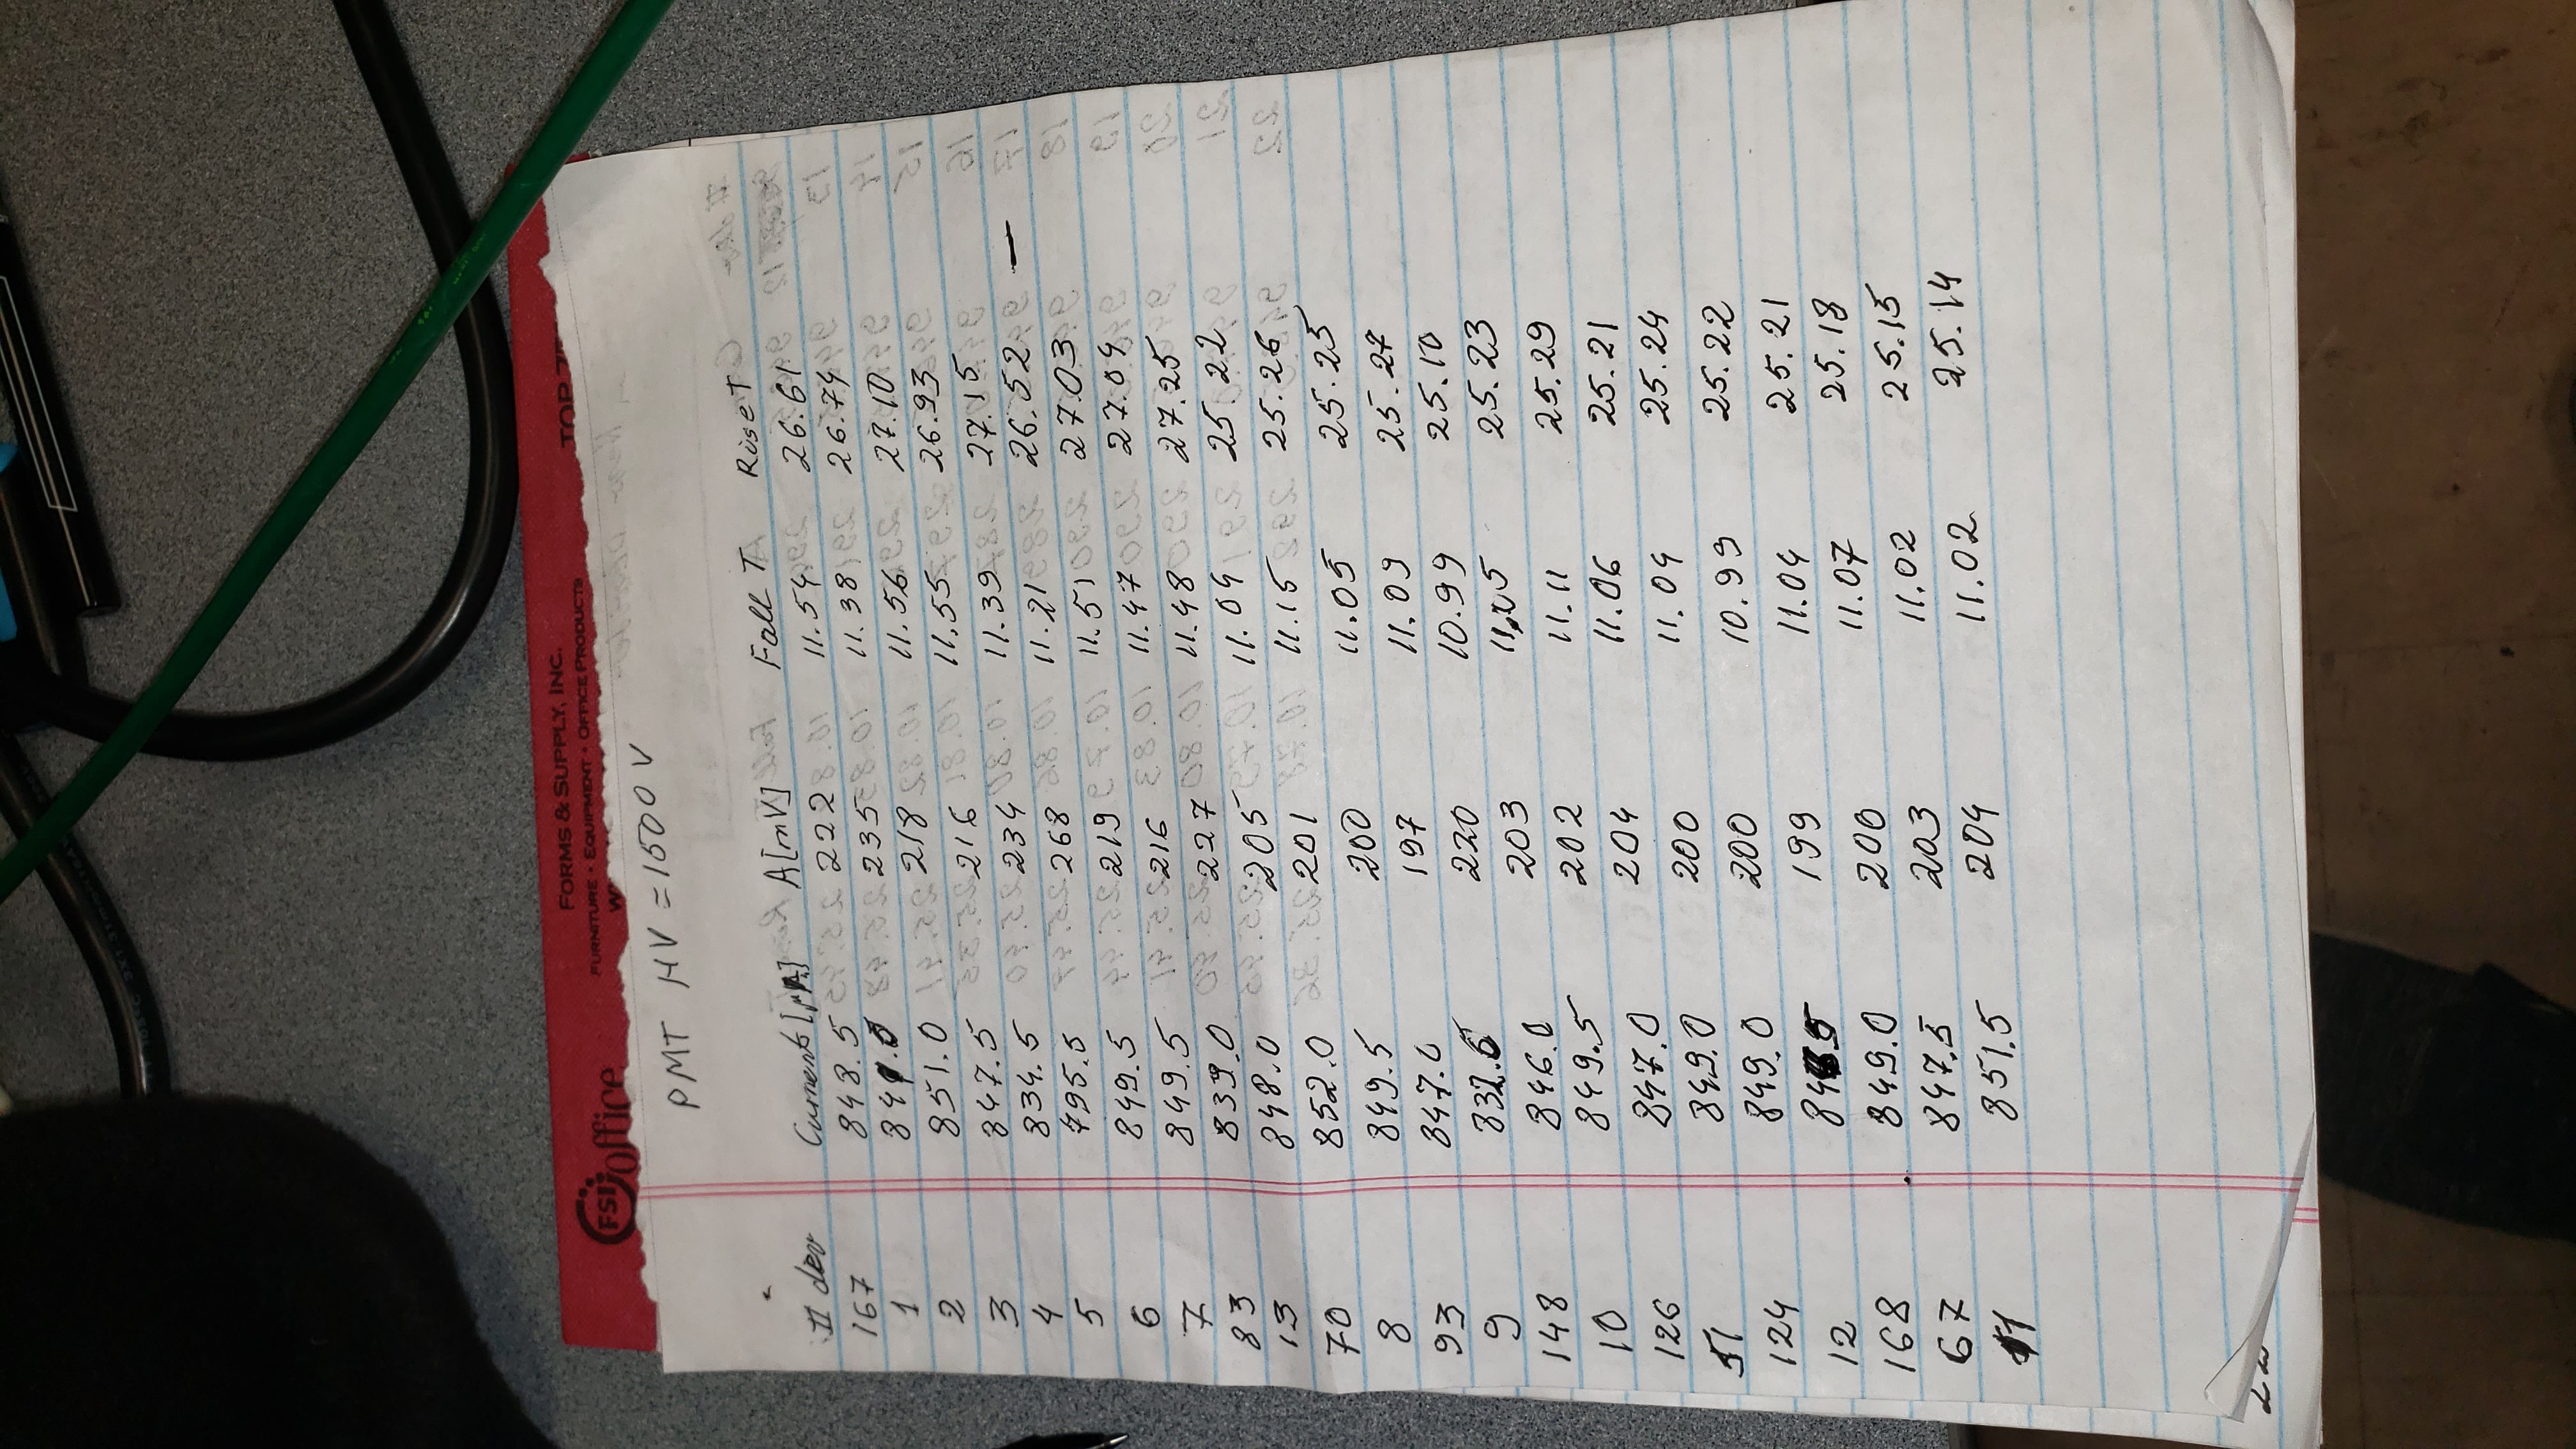 FSI office
FORMS & SUPPLY, INC.
FURNITURE • EQUIPMENT • OFFICE PRODUCTS
PMT HV = 1500 V
# dev Current [µA] A [mV] Fall T Rise T
167 848.5 222 11.54 26.61
1 841.0 235 11.38 26.74
2 851.0 218 11.56 27.10
3 847.5 216 11.55 26.93
4 834.5 234 11.39 27.15
5 795.5 268 11.21 26.52 —
6 849.5 219 11.51 27.03
7 849.5 216 11.47 27.09
83 839.0 227 11.48 27.25
13 848.0 205 11.04 25.22
70 852.0 201 11.15 25.26
8 849.5 200 11.05 25.25
93 847.0 197 11.09 25.27
9 832.5 220 10.99 25.10
148 846.0 203 25.23
10 849.5 202 11.11 25.29
126 847.0 204 11.06 25.21
849.0 200 11.04 25.24
124 849.0 200 10.99 25.22
12 199 11.04 25.21
168 849.0 200 11.07 25.18
67 847.5 203 11.02 25.15
851.5 204 11.02 25.14